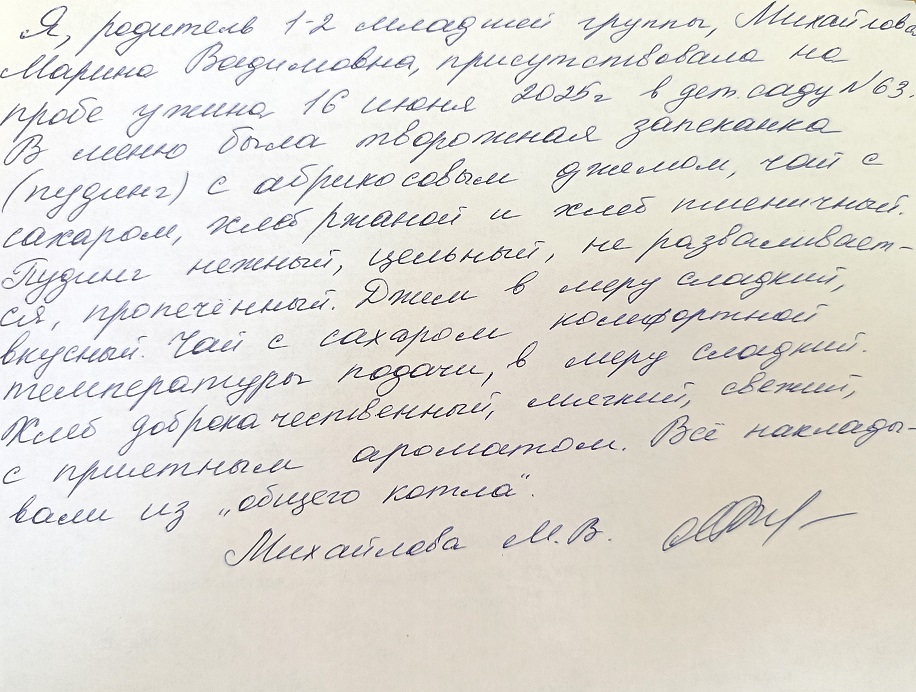 Я, родитель 1-2 младшей группы, Михайлова
Марина Вадимовна, присутствовала на
пробе ужина 16 июня 2025г в дет. саду №63.
В меню была творожная запеканка
(пудинг) с абрикосовым джемом, чай с
сахаром, хлеб ржаной и хлеб пшеничный.
Пудинг нежный, цельный, не разваливает-
ся, пропечённый. Джем в меру сладкий,
вкусный. Чай с сахаром комфортной
температуры подачи, в меру сладкий.
Хлеб доброкачественный, мягкий, свежий,
с приятным ароматом. Всё наклады-
вали из „общего котла“.
Михайлова М.В.